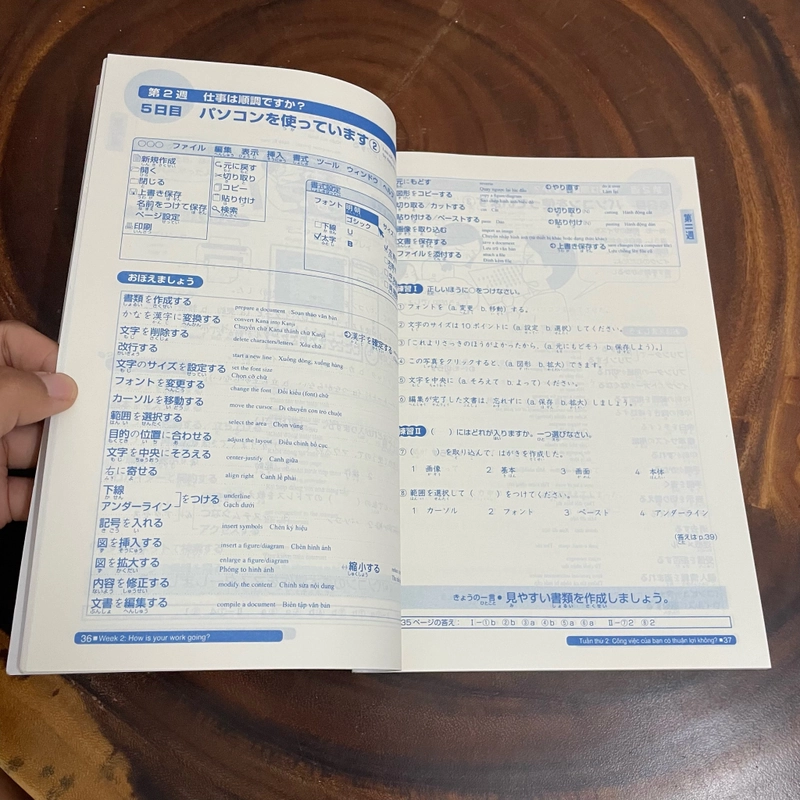 第2週 仕事は順調ですか?
5日目 パソコンを使っています②
○○○ ファイル 編集 表示 挿入 書式 ツール ウィンドウ
新規作成
開く
閉じる
上書き保存
名前をつけて保存
ページ設定
印刷
元に戻す
切り取り
コピー
貼り付け
検索
書式設定
フォント 明朝
ゴシック
下線 U
太字 B
おぼえましょう
書類を作成する prepare a document Soạn thảo văn bản
かなを漢字に変換する convert Kana into Kanji
Chuyển chữ Kana thành chữ Kanji
漢字を確定する
文字を削除する delete characters/letters Xóa chữ
改行する start a new line Xuống dòng, xuống hàng
文字のサイズを設定する set the font size
Chọn cỡ chữ
フォントを変更する change the font Đổi kiểu (font) chữ
カーソルを移動する move the cursor Di chuyển con trỏ chuột
範囲を選択する select the area Chọn vùng
目的の位置に合わせる adjust the layout Điều chỉnh bố cục
文字を中央にそろえる center-justify Canh giữa
右に寄せる align right Canh lề phải
下線
アンダーライン をつける underline
Gạch dưới
記号を入れる insert symbols Chèn ký hiệu
図を挿入する insert a figure/diagram Chèn hình ảnh
図を拡大する enlarge a figure/diagram
Phóng to hình ảnh
⇔縮小する
内容を修正する modify the content Chỉnh sửa nội dung
文書を編集する compile a document Biên tập văn bản
36 ■ Week 2: How is your work going?
元にもどす
やり直す
図形をコピーする
切り取る/カットする
切り取り
貼り付ける/ペーストする
貼り付け
画像を取り込む
文書を保存する
上書き保存する
ファイルを添付する
第二週
練習Ⅰ 正しいほうに○をつけなさい。
①フォントを (a. 変更 b. 移動) する。
②文字のサイズは10ポイントに (a. 設定 b. 選択) してください。
③「これよりさっきのほうがよかったから、(a. 元にもどそう b. 保存しよう)。」
④この写真をクリックすると、(a. 図形 b. 拡大) できます。
⑤文字を中央に (a. そろえて b. よって) ください。
⑥編集が完了した文書は、忘れずに (a. 保存 b. 拡大) しましょう。
練習Ⅱ ( )にはどれが入りますか。一つ選びなさい。
⑦( )を取り込んで、はがきを作成した。
1 画像 2 基本 3 画面 4 本体
⑧範囲を選択して( )をつけてください。
1 カーソル 2 フォント 3 ペースト 4 アンダーライン
(答えは p.39)
きょうの一言 • 見やすい書類を作成しましょう。
35ページの答え: Ⅰ－①b ②b ③a ④b ⑤a ⑥a Ⅱ－⑦2 ⑧2
Tuần thứ 2: Công việc của bạn có thuận lợi không? ■ 37